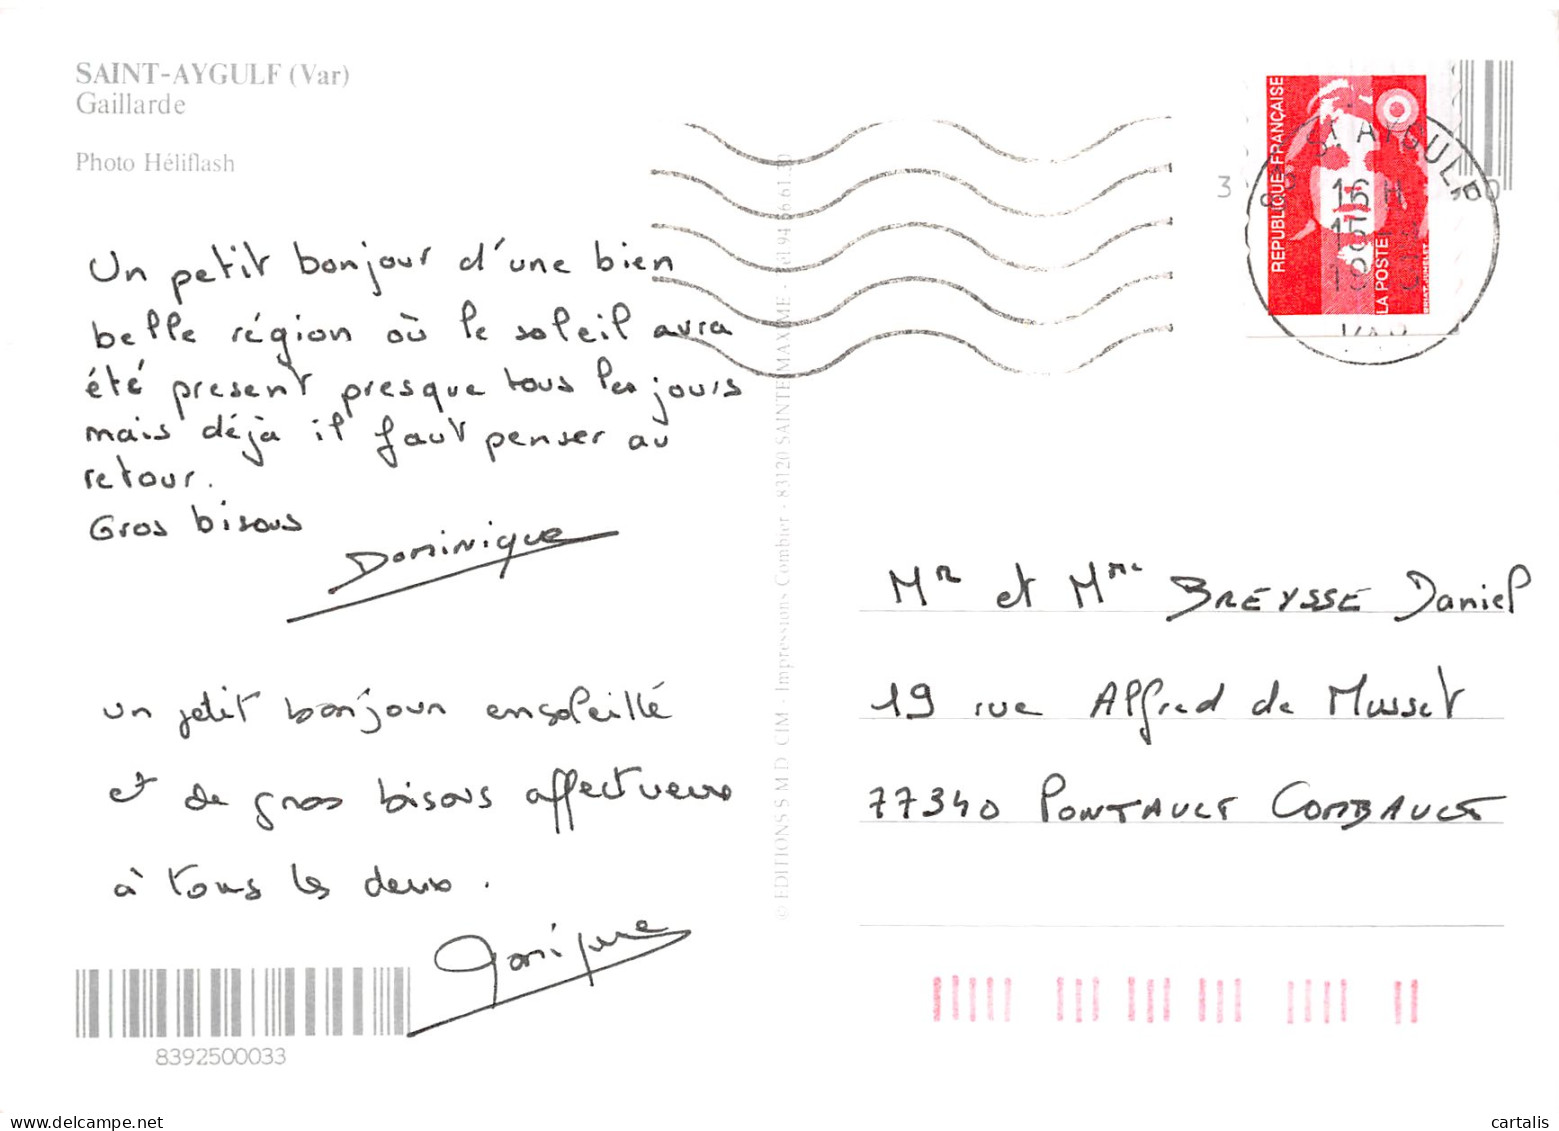 SAINT-AYGULF (Var)
Gaillarde
Photo Héliflash
Un petit bonjour d'une bien
belle région où le soleil avra
été present presque tous les jours
mais déjà il faut penser au
retour.
Gros bisous
Dominique
un petit bonjour ensoleillé
et de gros bisous affectueux
à tous les deux.
8392500033
© EDITIONS S M D CIM - Impressions Combier - 83120 SAINTE MAXIME
REPUBLIQUE FRANÇAISE
LA POSTE
St AYGULF
16 H
VAR
Mr et Mme BREYSSE Daniel
19 rue Alfred de Musset
77340 PONTAULT COMBAULT
delcampe.net
cartalis